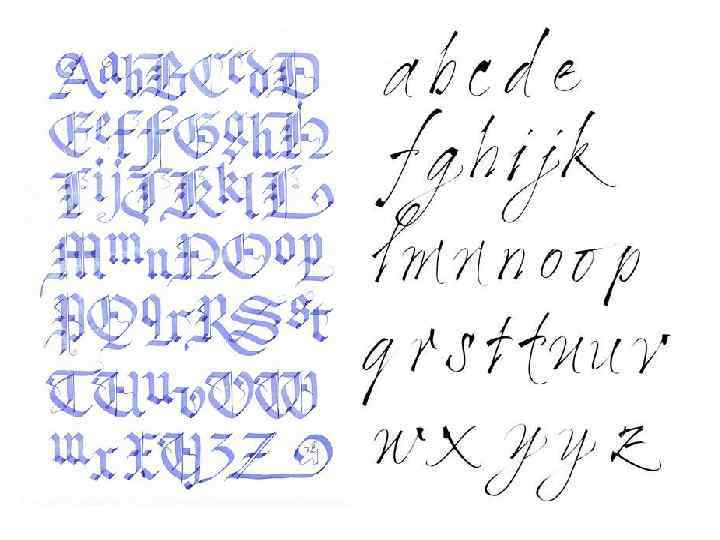 A a b B C c d D
E e f f G g h H
I i j J K k l L
M m n N O o P
P Q q r R S s t
T U u v V W
w x X y z Z
a b c d e
f g h i j k
l m n n o o p
q r s t t u u v
w x y y z